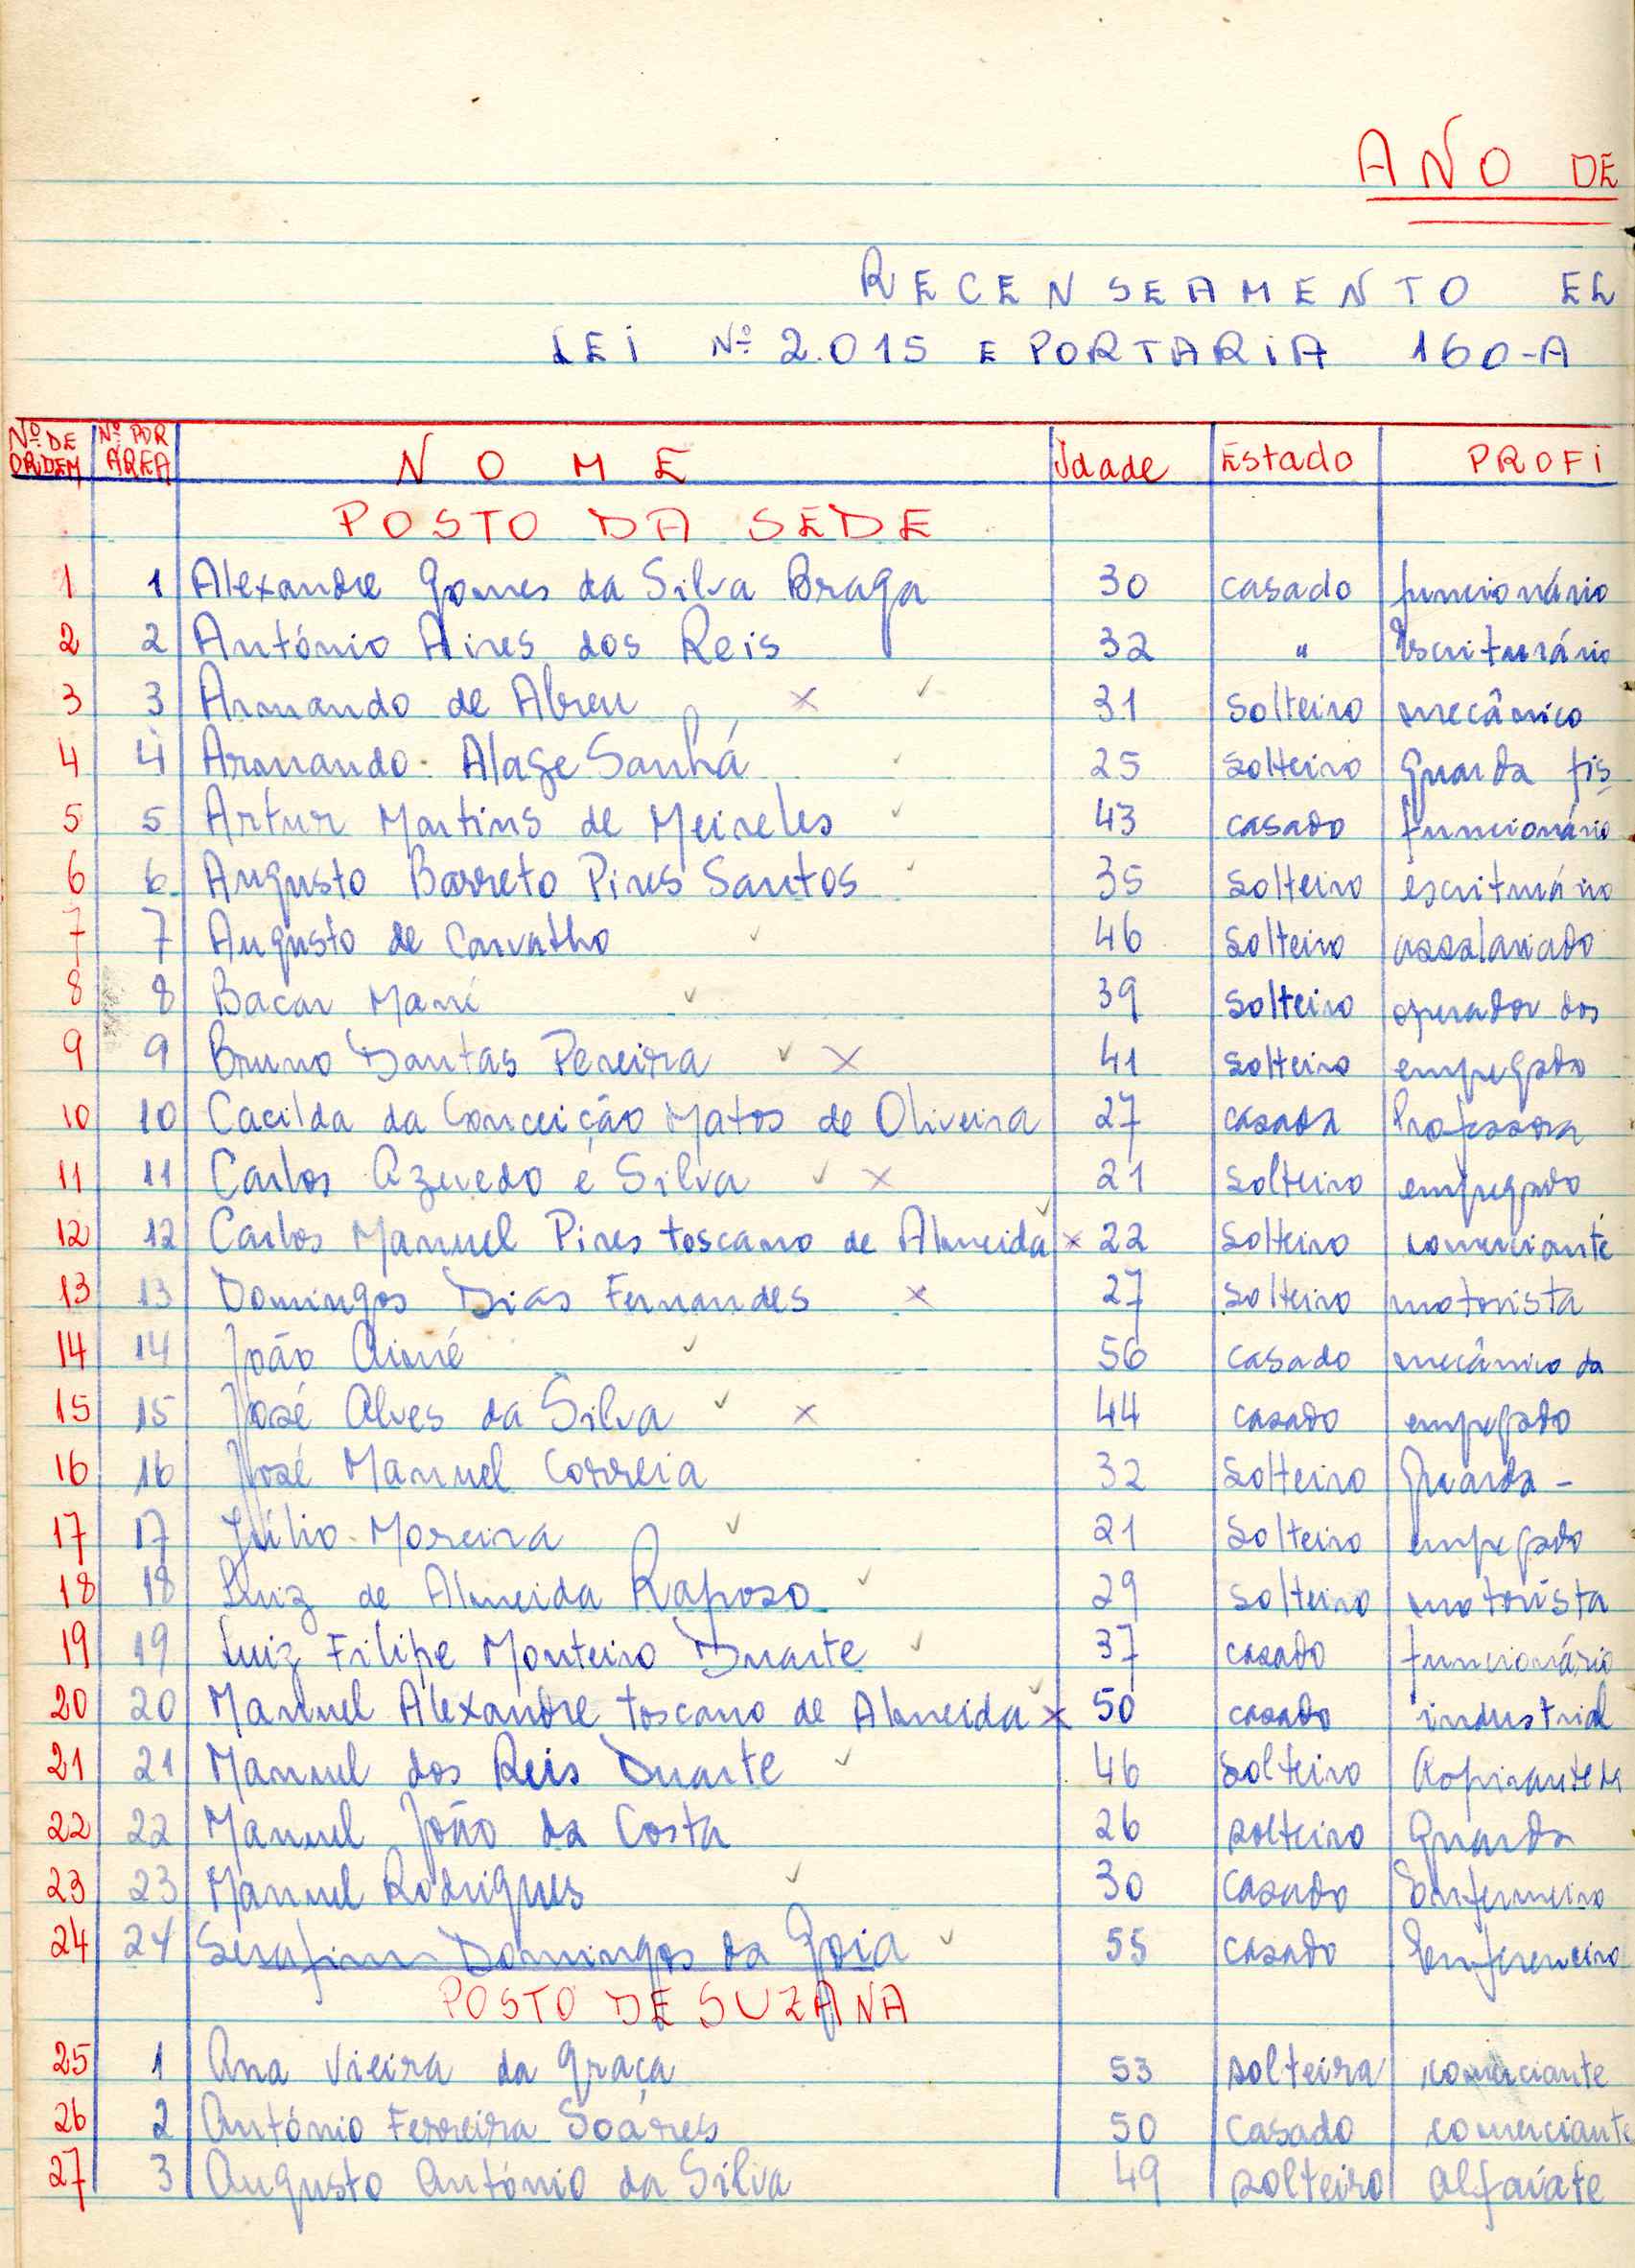 ANO DE
RECENSEAMENTO EL
LEI Nº 2.015 E PORTARIA 160-A
Nº DE ORDEM Nº POR ÁREA NOME Idade Estado PROFI
POSTO DA SEDE
1 1 Alexandre Gomes da Silva Braga 30 casado funcionário
2 2 António Aires dos Reis 32 " Escriturário
3 3 Armando de Abreu x ✓ 31 solteiro mecânico
4 4 Armando Alage Sanhá ✓ 25 solteiro guarda fis
5 5 Artur Martins de Meireles ✓ 43 casado funcionário
6 6 Augusto Barreto Pires Santos ✓ 35 solteiro escriturário
7 7 Augusto de Carvalho ✓ 46 solteiro assalariado
8 8 Bacar Mané ✓ 39 solteiro operador dos
9 9 Bruno Dantas Pereira ✓ x 41 solteiro empregado
10 10 Cacilda da Conceição Matos de Oliveira 27 casada Professora
11 11 Carlos Azevedo e Silva ✓ x 21 solteiro empregado
12 12 Carlos Manuel Pires toscano de Almeida ✓ x 22 solteiro comerciante
13 13 Domingos Dias Fernandes x 27 solteiro motorista
14 14 João ✓ 56 casado mecânico da
15 15 José Alves da Silva ✓ x 44 casado empregado
16 16 José Manuel Correia 32 solteiro guarda -
17 17 Júlio Moreira ✓ 21 solteiro empregado
18 18 Luiz de Almeida Raposo ✓ 29 solteiro motorista
19 19 Luiz Filipe Monteiro Duarte ✓ 37 casado funcionário
20 20 Manuel Alexandre toscano de Almeida ✓ x 50 casado industrial
21 21 Manuel dos Reis Duarte ✓ 46 solteiro Aspirante
22 22 Manuel João da Costa 26 solteiro Guarda
23 23 Manuel Rodrigues ✓ 30 casado Enfermeiro
24 24 Serafim Domingos da Goia ✓ 55 casado Enfermeiro
POSTO DE SUZANA
25 1 Ana Vieira da Graça 53 solteira comerciante
26 2 António Ferreira Soáres 50 casado comerciante
27 3 Augusto António da Silva 49 solteiro alfaiate